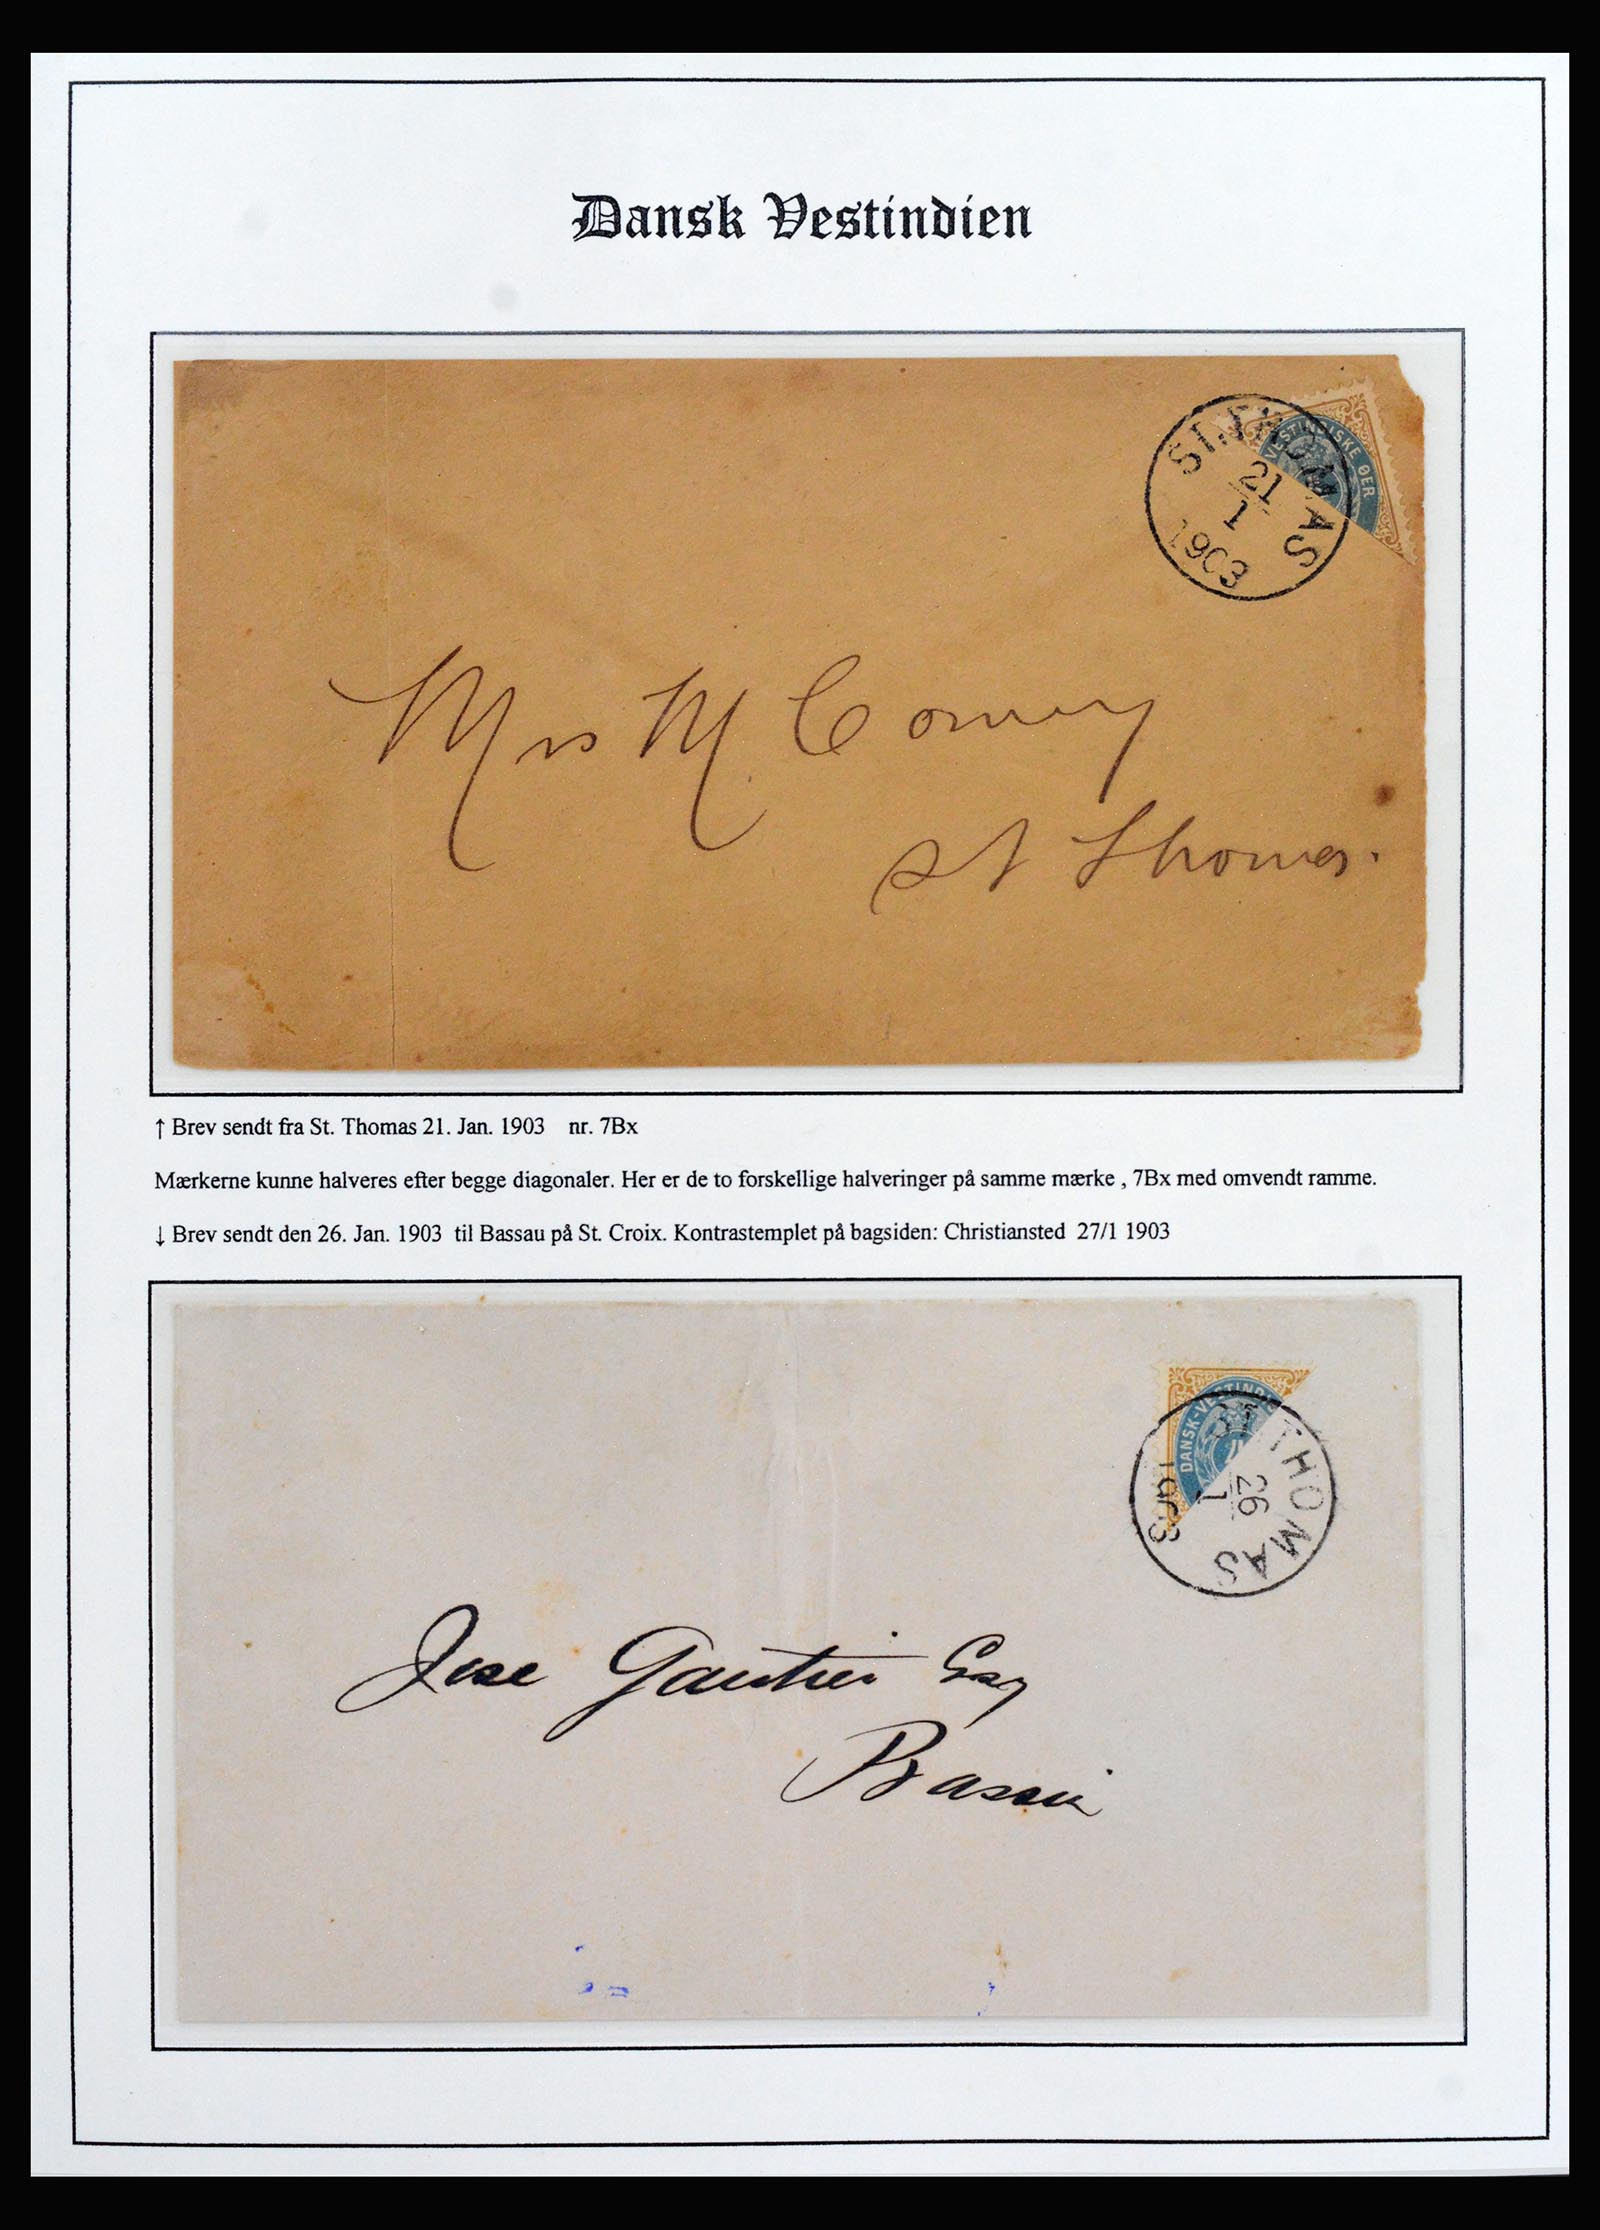 Dansk Vestindien
VESTINDISKE ØER
ST. THOMAS
21
1
1903
Mrs M. Conney
St Thomas.
↑ Brev sendt fra St. Thomas 21. Jan. 1903 nr. 7Bx
Mærkerne kunne halveres efter begge diagonaler. Her er de to forskellige halveringer på samme mærke , 7Bx med omvendt ramme.
↓ Brev sendt den 26. Jan. 1903 til Bassau på St. Croix. Kontrastemplet på bagsiden: Christiansted 27/1 1903
DANSK-VESTINDI
4
ST. THOMAS
26
1
1903
Jose Gautier Esq
Bassin